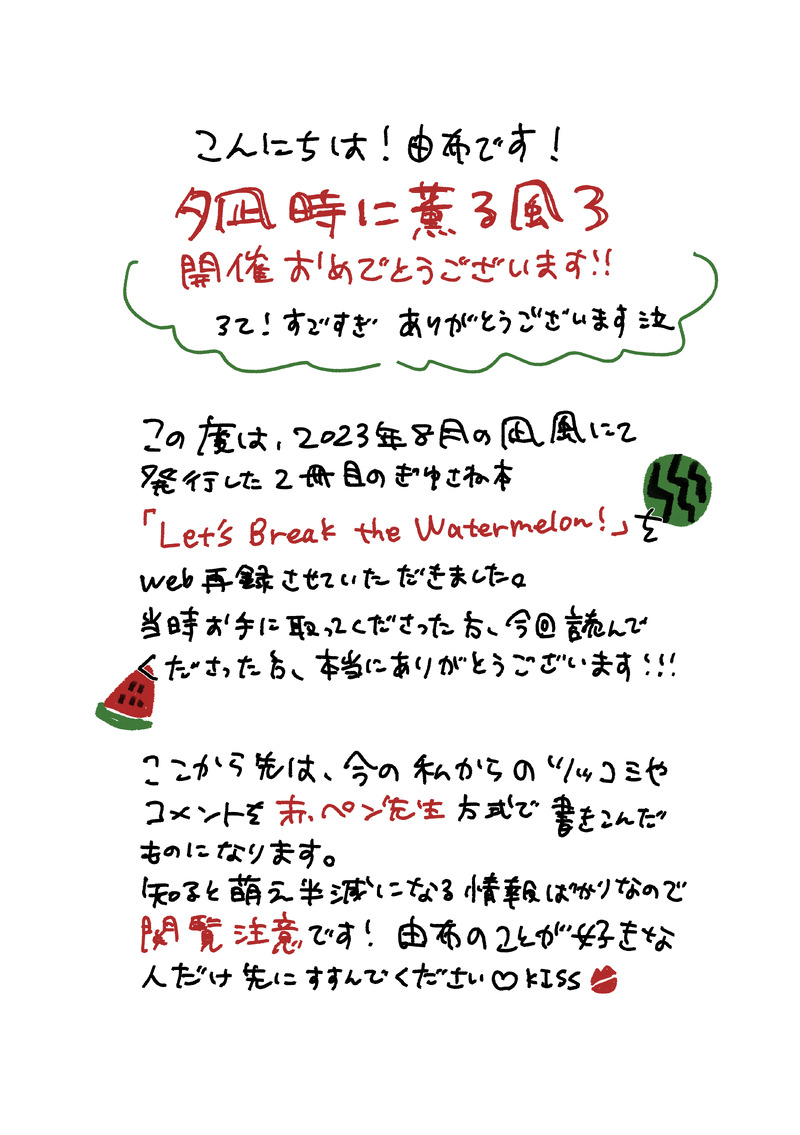 こんにちは！由布です！
夕凪時に薫る風3
開催おめでとうございます!!
3て！すごすぎ ありがとうございます泣
この度は、2023年8月の凪風にて
発行した2冊目のぎゆさね本
「Let's Break the Watermelon!」を
web再録させていただきました。
当時お手に取ってくださった方、今回読んで
くださった方、本当にありがとうございます!!!
ここから先は、今の私からのツッコミや
コメントを赤ペン先生方式で書きこんだ
ものになります。
知ると萌え半減になる情報ばかりなので
閲覧注意です！由布のことが好きな
人だけ先にすすんでください♡KISS